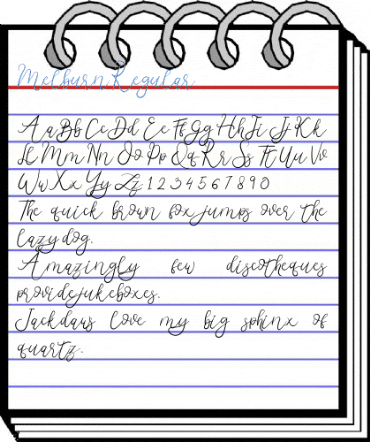 Melburn Regular
Aa Bb Cc Dd Ee Ff Gg Hh Ii Jj Kk
Ll Mm Nn Oo Pp Qq Rr Ss Tt Uu Vv
Ww Xx Yy Zz 1 2 3 4 5 6 7 8 9 0
The quick brown fox jumps over the
lazy dog.
Amazingly few discotheques
provide jukeboxes.
Jackdaws love my big sphinx of
quartz.